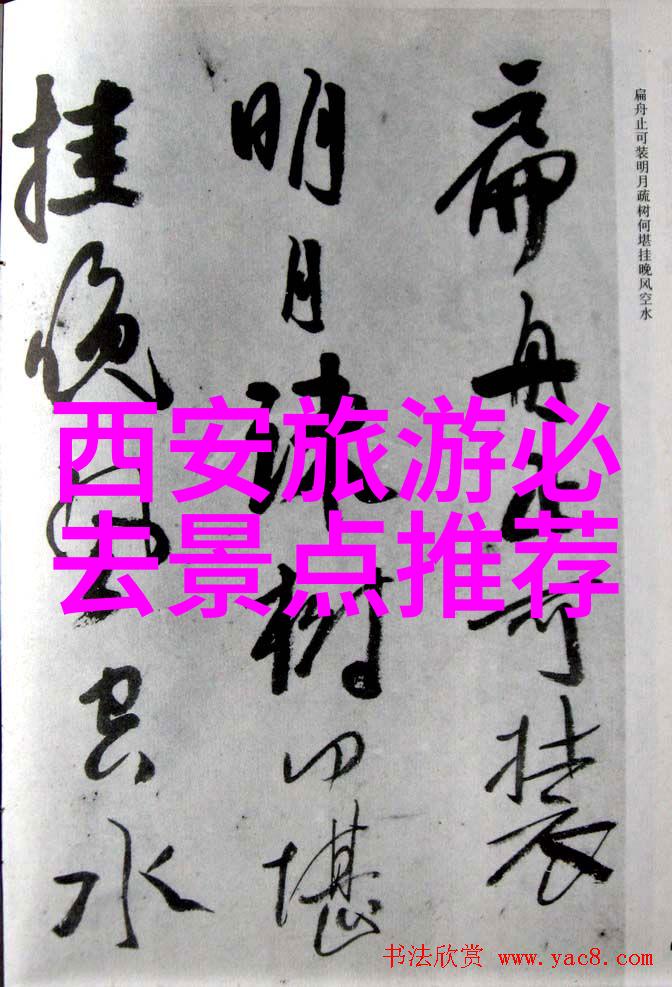 扁舟止可装
明月疏树何堪
挂晚风空水
扁舟止可装明月疏树何堪挂晚风空水
西安旅游必
去景点推荐
书法欣赏 www.yac8.com